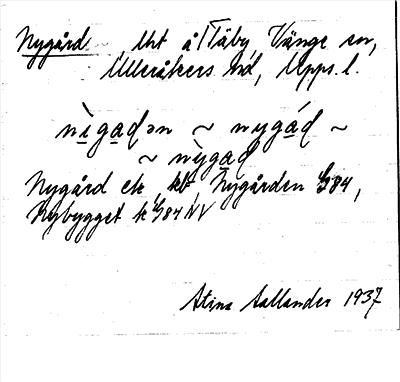 Nygård lht å Täby, Vänge sn,
Ulleråkers hd, Upps. l.
nìgadən ~ nygád ~
~ nỳgad
Nygård ek, kbt, Nygården G84,
Nybygget k G84 NV
Stina Sallander 1937